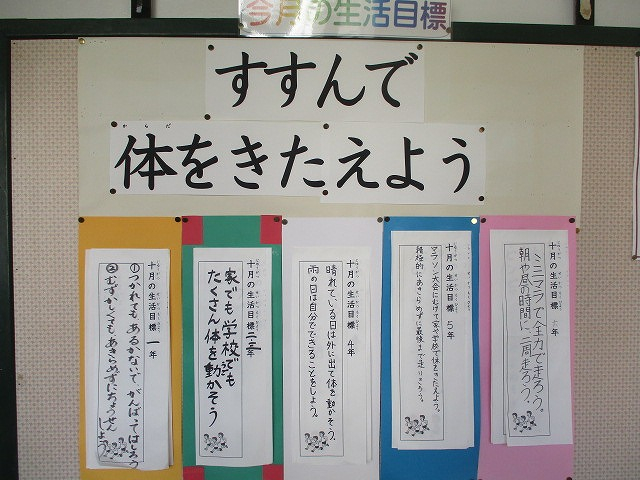 今月の生活目標
すすんで
からだ
体をきたえよう
十月の生活目標 一年
①つかれても あるかないで、がんばってはしろう
②むずかしくても あきらめずにちょうせんしよう
十月の生活目標 二・三年
家でも 学校でも
たくさん体を動かそう
十月の生活目標 4年
晴れている日は外に出て体を動かそう。
雨の日は自分でできることをしよう。
十月の生活目標 5年
マラソン大会にむけて家や学校で体をきたえよう。
積極的にあきらめずに最後まで走りきろう。
十月の生活目標 六年
ミニマラで全力で走ろう。
朝や昼の時間に、二周走ろう。